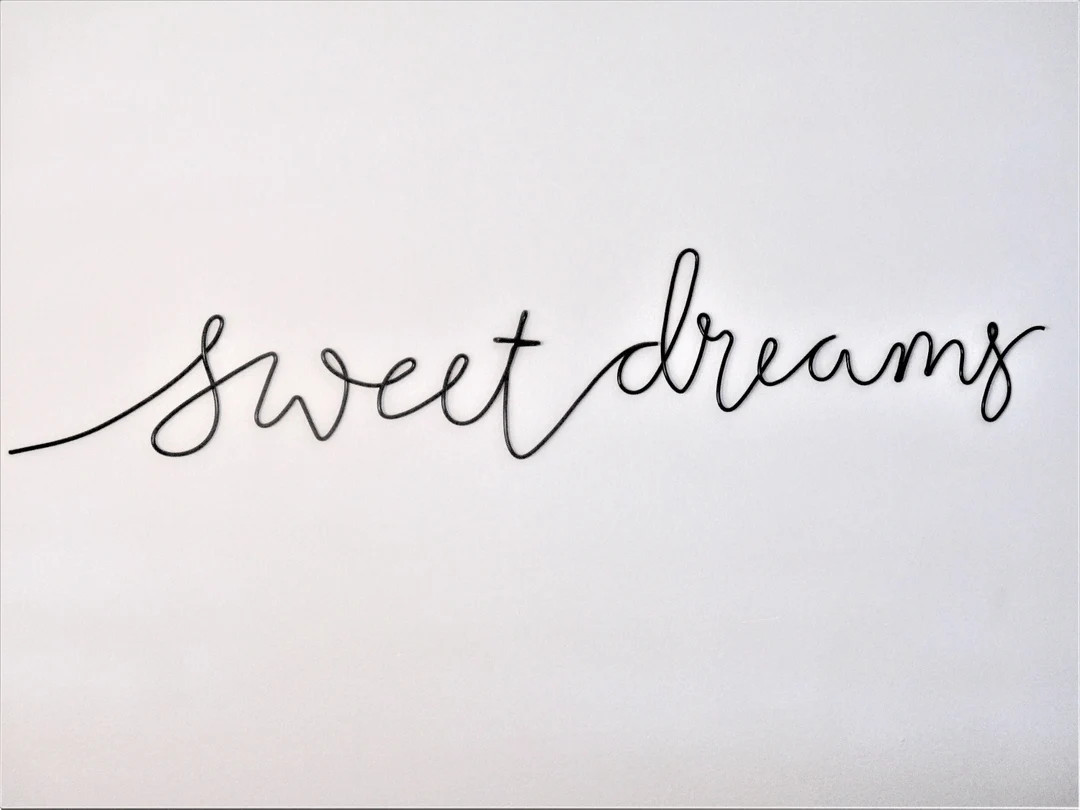 sweet dreams